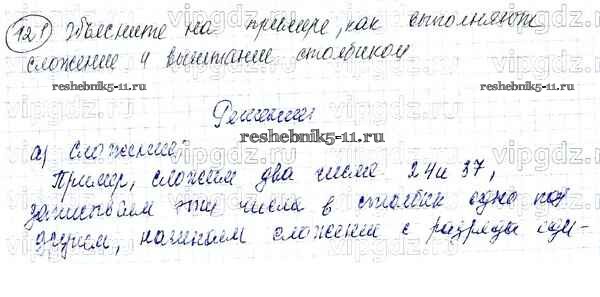 121 Объясните на примере, как выполняют
сложение и вычитание столбиком
reshebnik5-11.ru
reshebnik5-11.ru
Решение:
reshebnik5-11.ru
а) Сложение:
Пример, сложим два числа 24 и 37,
записываем эти числа в столбик одно под
другим, начинаем сложение с разряда еди-